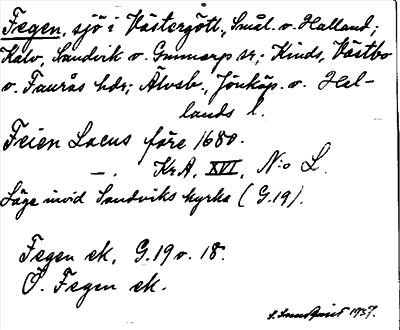 Fegen, sjö i Västergötl., Smål. o. Halland;
Kalv, Sandvik o. Gunnarp sr; Kinds, Västbo
o. Faurås hdr; Älvsb., Jönköp. o. Hal-
lands l.
Feien Lacus före 1680.
—. KrA, XVI, N:o L.
Läge invid Sandviks kyrka (G.19).
Fegen ek, G.19 o. 18.
Ö. Fegen ek.
1937.